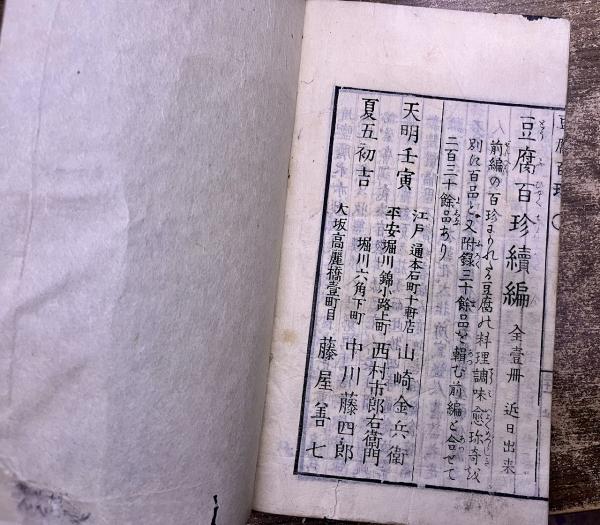 豆腐百珍續編 全壹冊 近日出來
前編の百珍にもれたる豆腐の料理調味愈珍奇なる
別に百品と又附録三十餘品を輯む前編と合せて
二百三十餘品あり
江戸 通本石町十軒店 山崎金兵衛
天明壬寅 平安堀川錦小路上町 西村市郎右衛門
堀川六角下町 中川藤四郎
夏五初吉
大坂高麗橋壹町目 藤屋善七
豆腐百珍